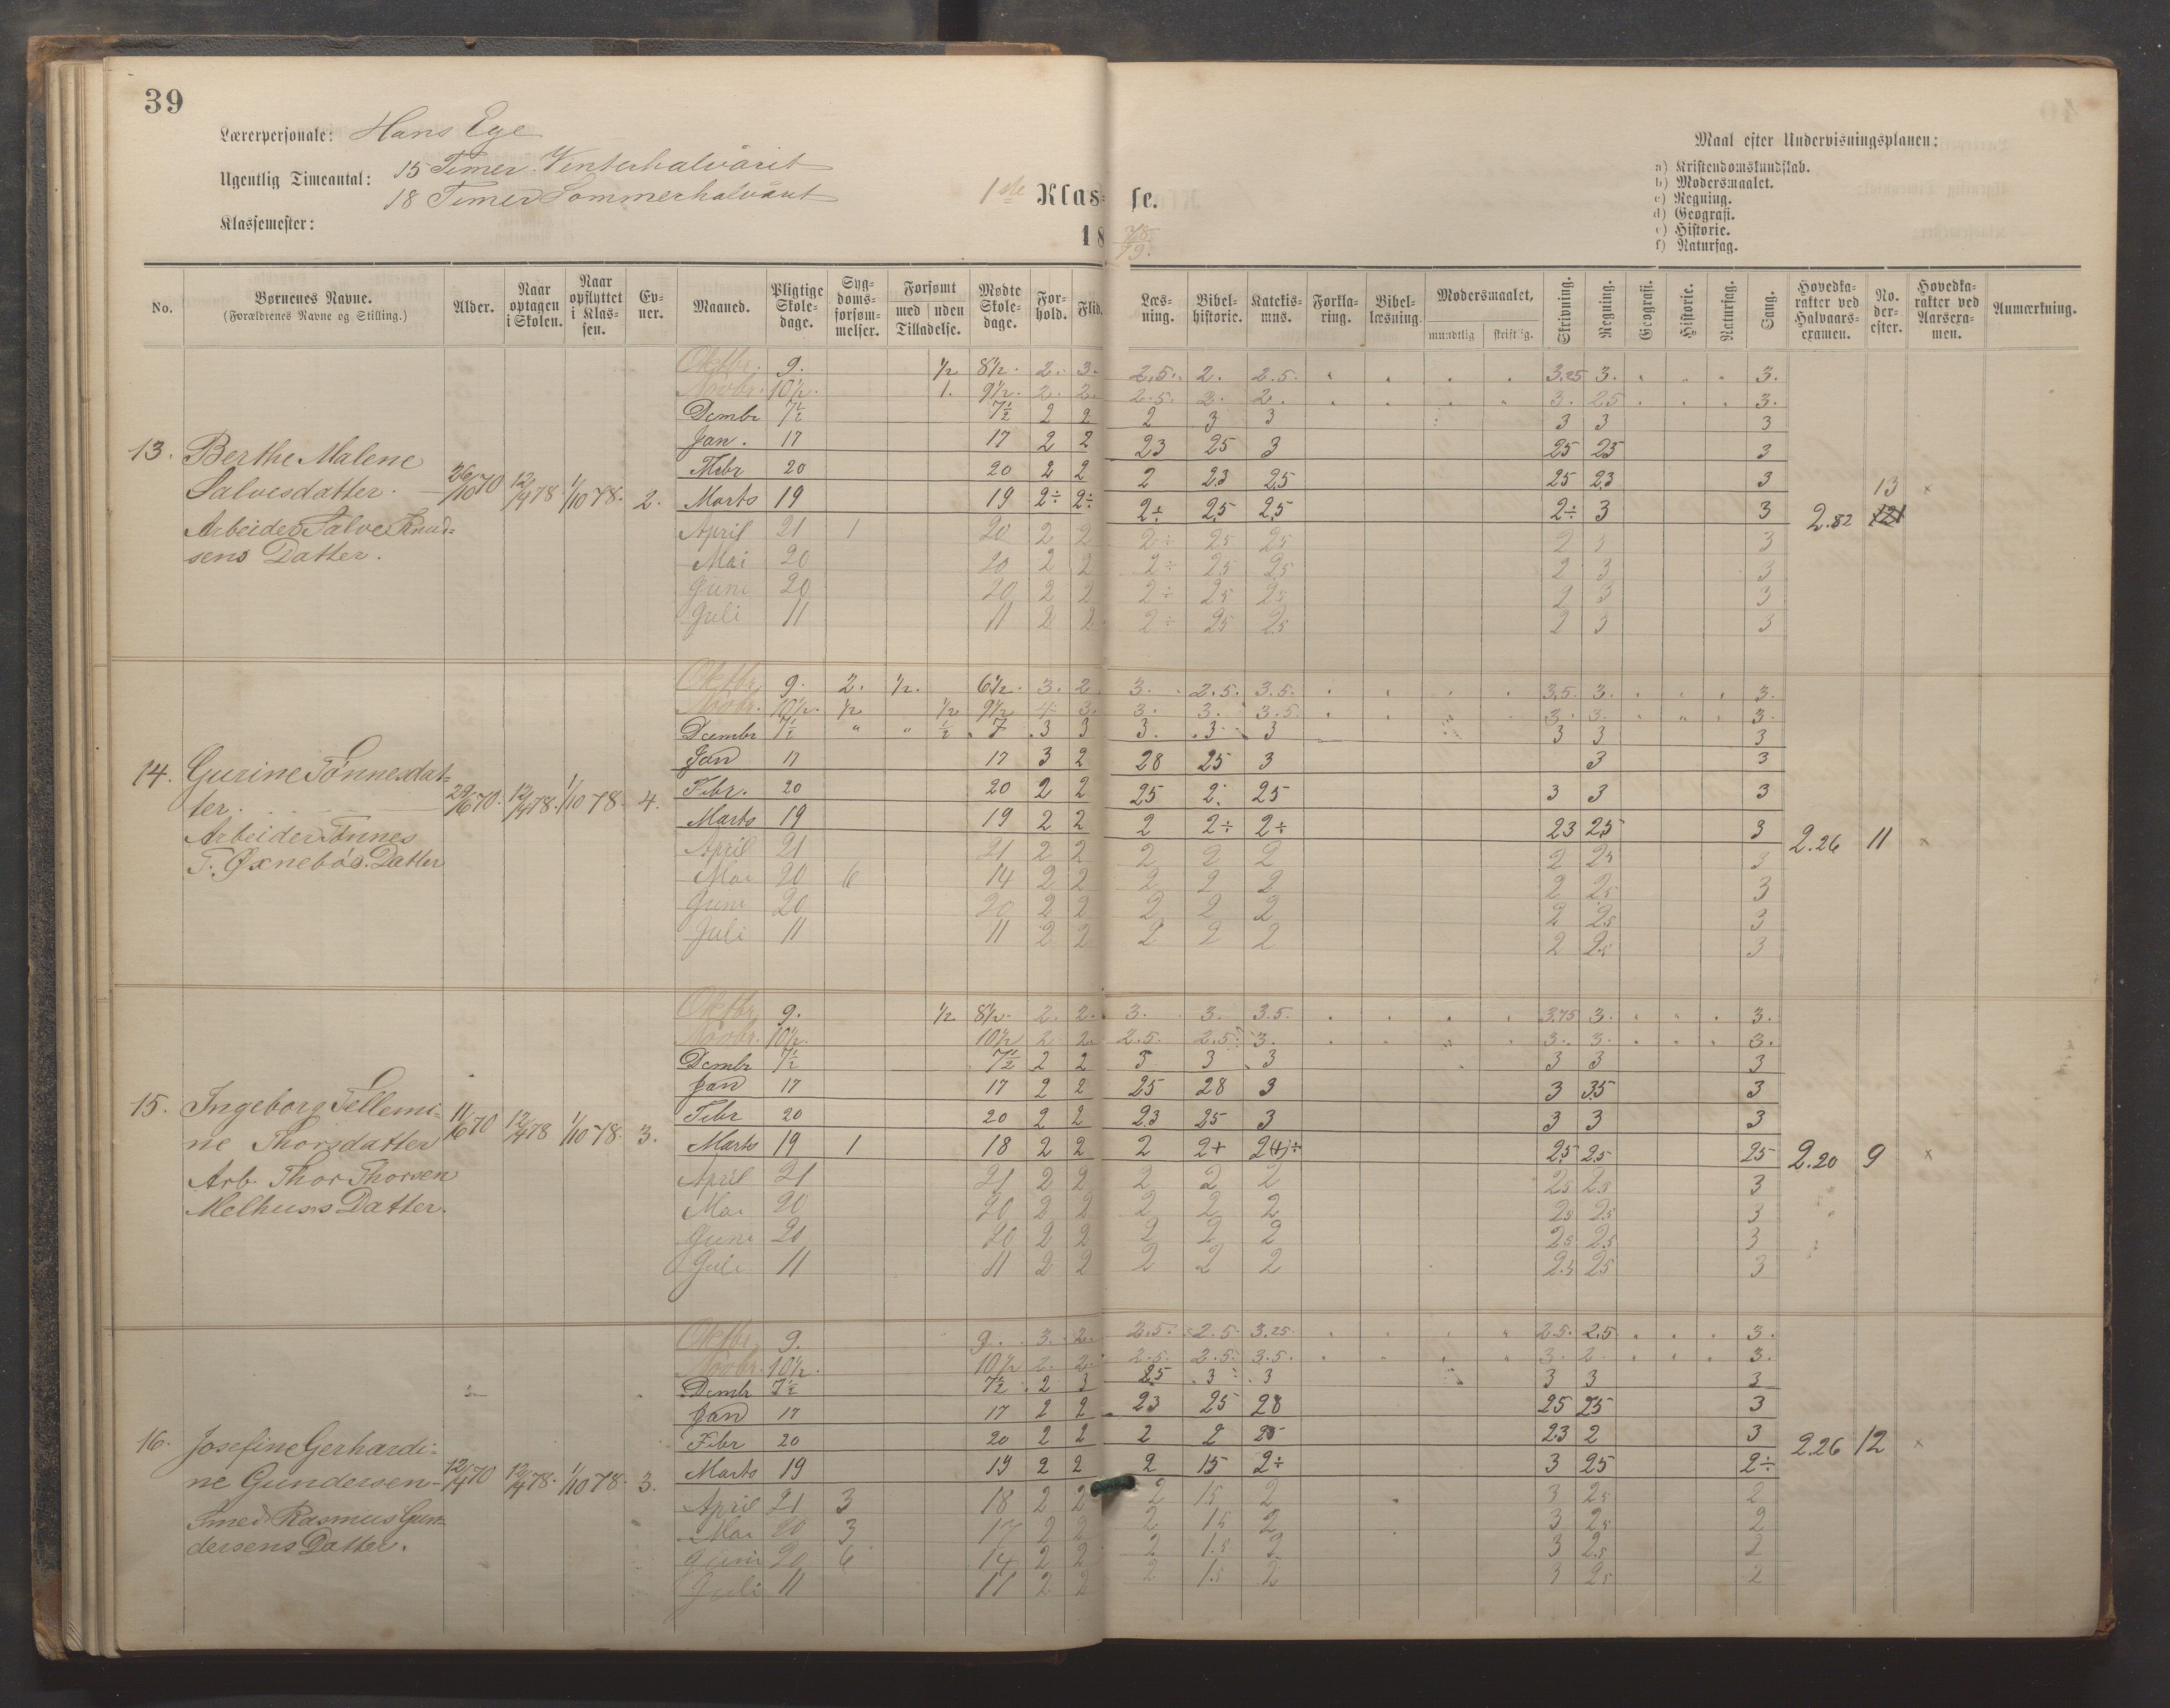 39
Lærerpersonale: Hans Ege
Ugentlig Timeantal: 15 Timer Vinterhalvåret
18 Timer Sommerhalvåret
Klassemester:
1ste Klas- se.
18 78/79.
Maal efter Undervisningsplanen:
a) Kristendomskundskab.
b) Modersmaalet.
c) Regning.
d) Geografi.
e) Historie.
f) Naturfag.
No. | Børnenes Navne. (Forældrenes Navne og Stilling.) | Alder. | Naar optagen i Skolen. | Naar opflyttet i Klassen. | Evner. | Maaned. | Pligtige Skoledage. | Sygdomsforsømmelser. | Forsømt med uden Tilladelse. | Mødte Skoledage. | Forhold. | Flid. | Læsning. | Bibelhistorie. | Katekismus. | Forklaring. | Bibellæsning. | Modersmaalet, mundtlig skriftlig. | Skrivning. | Regning. | Geografi. | Historie. | Naturfag. | Sang. | Hovedkarakter ved Halvaarsexamen. | No. derefter. | Hovedkarakter ved Aarsexamen. | Anmærkning.
13. Berthe Malene
Salvesdatter.
Arbeider Salve Knud-
sens Datter.
26/10 70 12/9 78 1/10 78. 2.
Oktbr. 9. 1/2 8 1/2. 2. 3. 2.5. 2. 2.5. 3.25 3. 3.
Novbr. 10 1/2. 1. 9 1/2. 2. 2. 2.5. 2. 2. 3. 25 3.
Dcmbr 7 1/2 7 1/2 2 2 2 3 3 3 3 3
Jan. 17 17 2 2 23 25 3 25 25 3
Febr 20 20 2 2 2 23 25 25 23 3
Marts 19 19 2÷ 2÷ 2÷ 25 25 2÷ 3 3
April 21 1 20 2 2 2÷ 25 25 2 3 3
Mai 20 20 2 2 2÷ 25 25 2 3 3
Juni 20 20 2 2 2÷ 25 25 2 3 3
Juli 11 11 2 2 2÷ 25 25 2 3 3
2.82 13 ×
14. Gurine Tönnesdat-
ter.
Arbeider Tönnes
T. Øxnebös. Datter
29/6 70. 12/9 78. 1/10 78. 4.
Oktbr. 9. 2. 1/2. 6 1/2. 3. 2 3. 2.5. 3.5. 3.5. 3. 3.
Novbr. 10 1/2. 1/2 1/2 9 1/2 4. 3. 3. 3. 3.5. 3. 3. 3.
Dcembr 7 1/2 " " 1/2 7 3 3 3. 3 3 3 3 3
Jan 17 17 3 2 28 25 3 3 3
Febr. 20 20 2 2 25 2. 25 3 3 3
Marts 19 19 2 2 2 2÷ 2÷ 23 25 3
April 21 21 2 2 2 2 2 2 25 3
Mai 20 6 14 2 2 2 2 2 2 25 3
Juni 20 20 2 2 2 2 2 2 25 3
Juli 11 11 2 2 2 2 2 2 25 3
2.26 11 ×
15. Ingeborg Tellemi-
ne Thorsdatter
Arb. Thor Thorsen
Melhuss Datter.
11/6 70 12/9 78 1/10 78. 3.
Oktbr. 9. 1/2 8 1/2. 2. 2. 3. 3. 3.5. 3.75 3. 3.
Novbr. 10 1/2. 10 1/2 2 2. 2.5. 2.5. 3. 3. 3. 3.
Dcmbr 7 1/2 7 1/2 2 2 3 3 3 3 3 3
Jan 17 17 2 2 25 28 3 3 35 3
Febr 20 20 2 2 23 25 3 3 3 3
Marts 19 1 18 2 2 2 2+ 2(+)÷ 25 25 25
April 21 21 2 2 2 2 2 25 25 3
Mai 20 20 2 2 2 2 2 25 25 3
Juni 20 20 2 2 2 2 2 25 25 3
Juli 11 11 2 2 2 2 2 25 25 3
2.20 9 ×
16. Josefine Gerhardi-
ne Gundersen
Smed Rasmus Gun-
dersens Datter.
12/1 70 12/9 78. 1/10 78. 3.
Oktbr. 9. 9. 3. 2. 2.5. 2.5. 3.25. 2.5. 2.5 3.
Novbr. 10 1/2. 10 1/2 2. 2. 2.5. 2.5. 3.5. 3. 2. 3.
Dcmbr 7 1/2 7 1/2 2 3 25 3 3 3 3 3
Jan 17 17 2 2 23 25 28 25 25 3
Febr 20 20 2 2 2 2 25 23 2 3
Marts 19 19 2 2 2 15 2÷ 3 25 2÷
April 21 3 18 2 2 2 15 2 3 25 2
Mai 20 3 17 2 2 2 15 2 3 25 2
Juni 20 6 14 2 2 2 1.5 2 3 25 2
Juli 11 11 2 2 2 1.5 2 3 25 2
2.26 12 ×